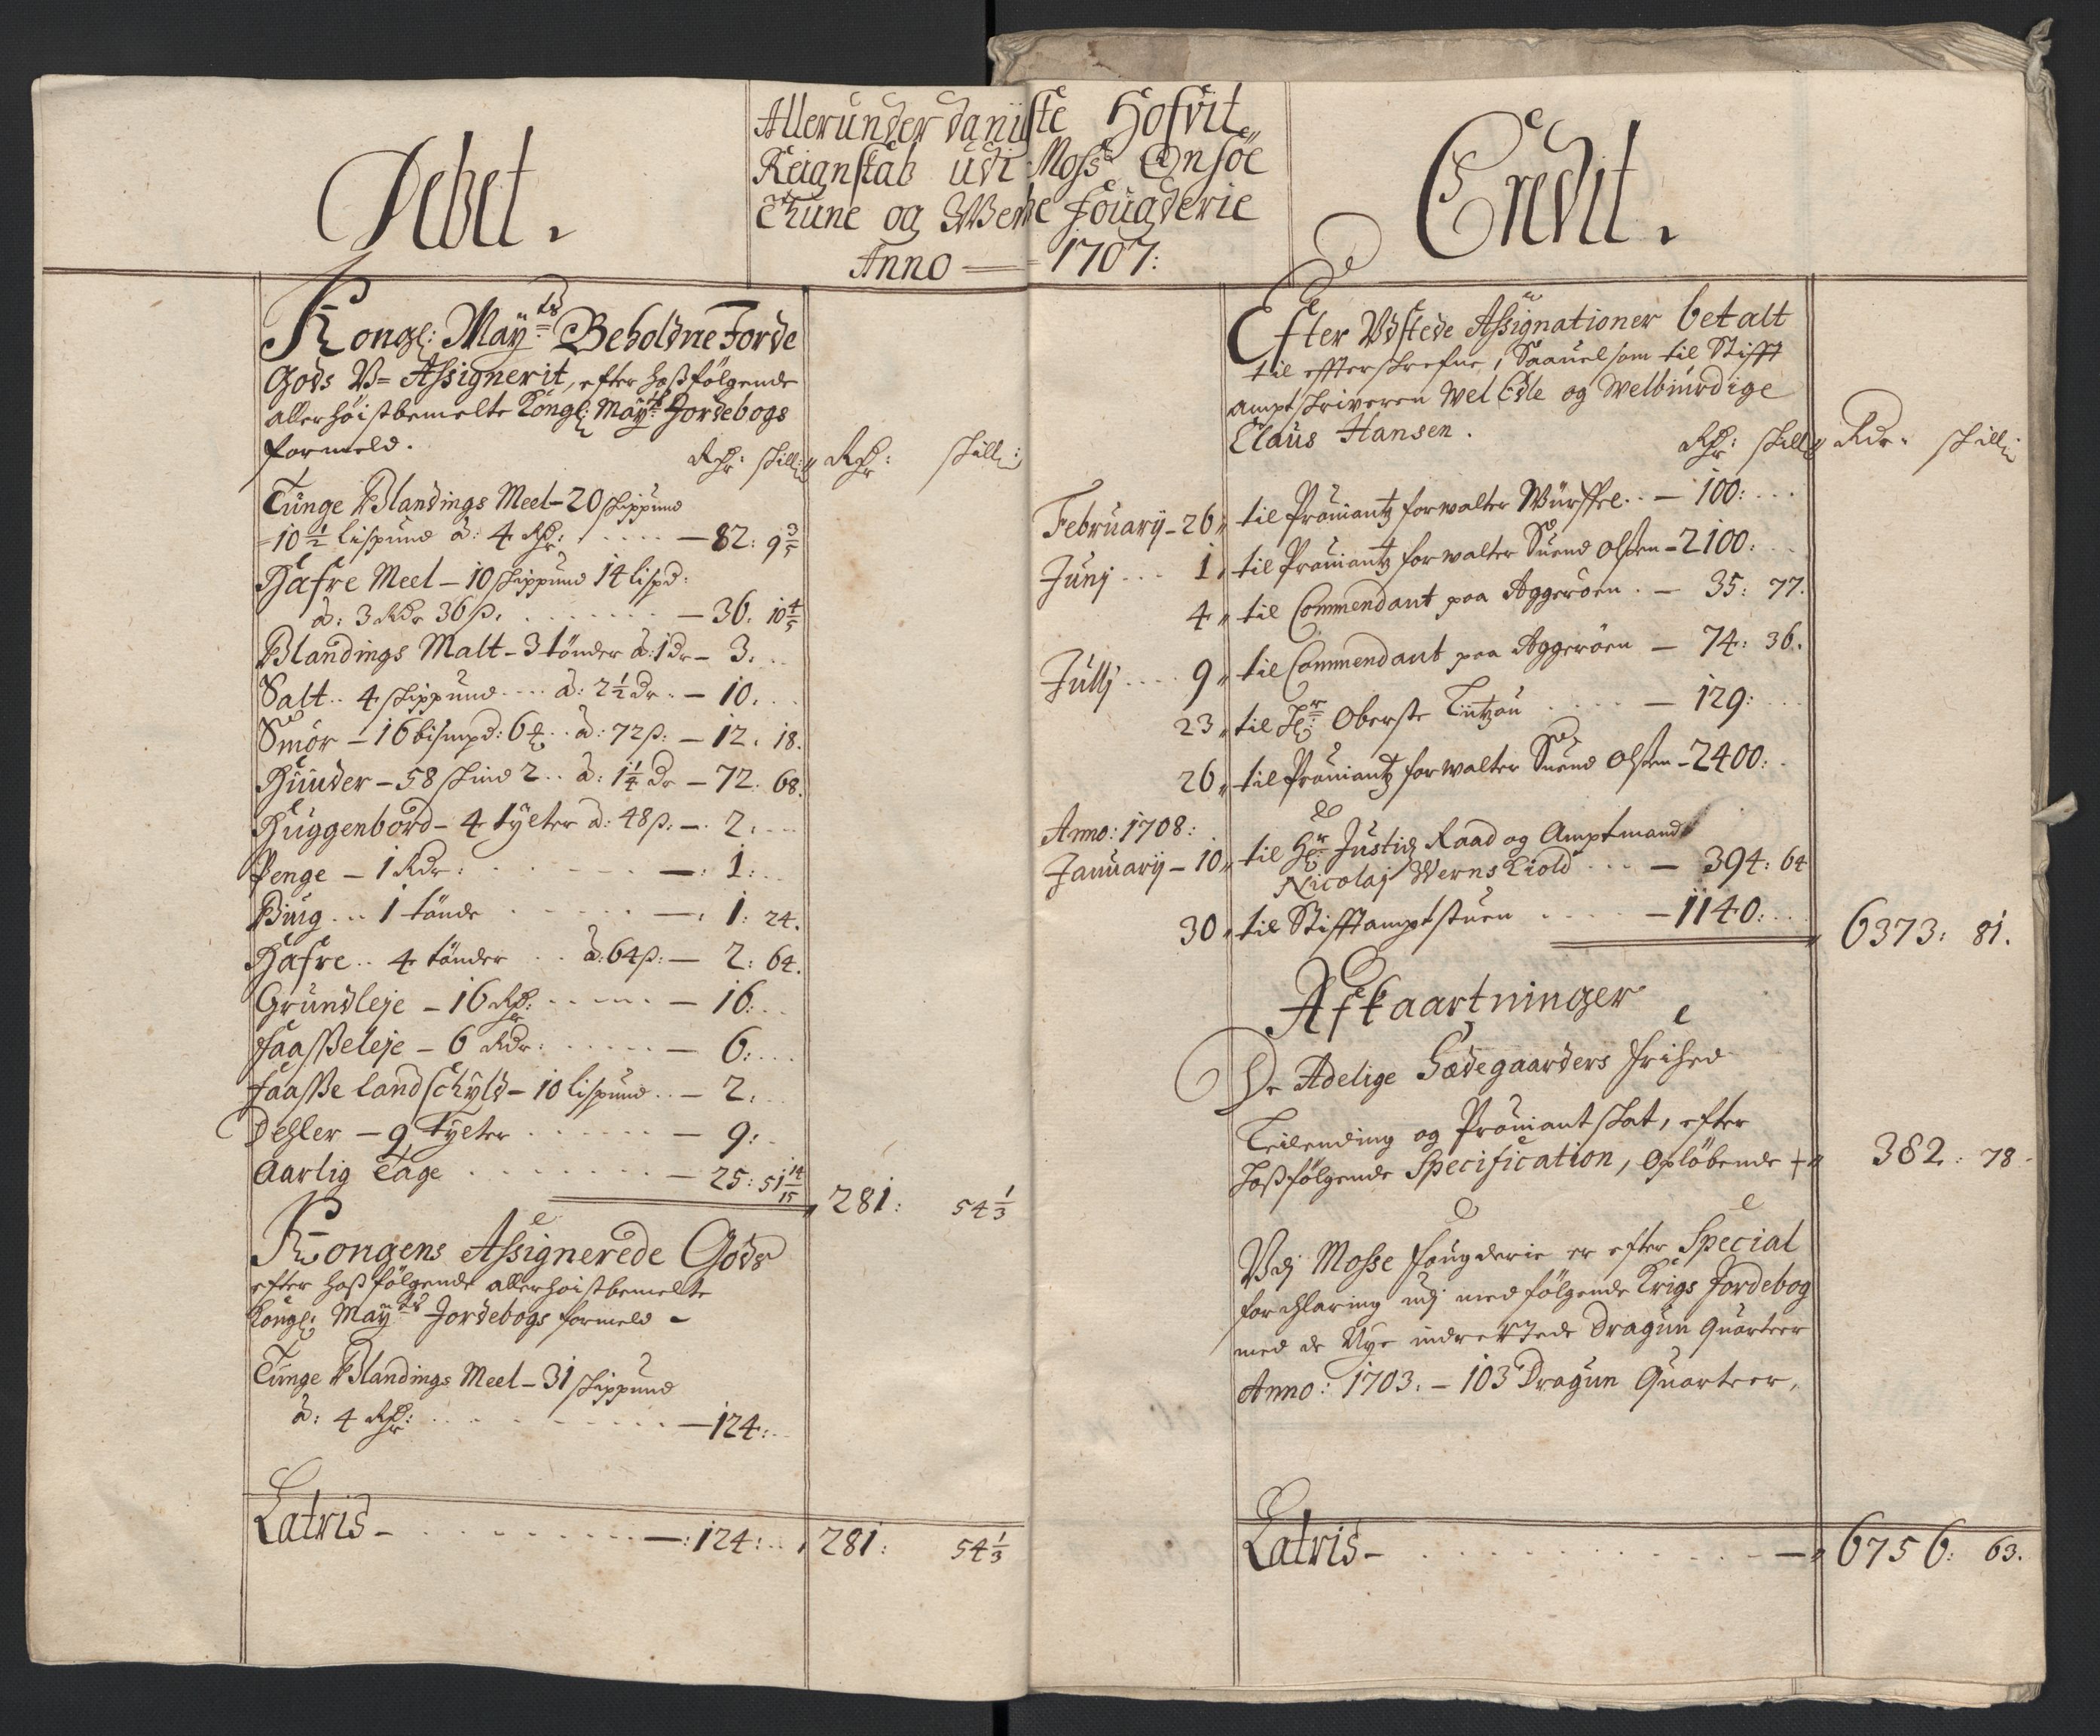 Debet.
Allerunderdaniste Hofvit
Reignstab udi Moss Onsöe
Thune og Werne Fougderie
Anno 1707:
Credit.
Kongl: Maÿts Beholdne Jorde
Gods U= Assignerit, efter hossfölgende
allerhöistbemelte Kongl: Maÿts Jordebogs
formeld.
Rdr: skill: Rdr: skill:
Tunge Blandings Meel - 20 skippund
10 1/2 lispund à: 4 Rdr: - 82: 9 3/5
Hafre Meel - 10 skippund 14 lispd:
à: 3 Rdr 36 ß. - 36. 10 4/5
Blandings Malt - 3 tönder à: 1 dr - 3.
Salt .. 4 skippund à: 2 1/2 dr. - 10.
Smör - 16 bismpd: 6 à: 72 ß: - 12. 18.
Huuder - 58 skind 2 .. à: 1 1/4 dr - 72. 68.
Huggenbord - 4 tÿlter à: 48 ß. - 2.
Penge - 1 Rdr: - 1:
Biug ... 1 tönde - 1: 24.
Hafre .. 4 tönder à: 64 ß: - 2: 64.
Grundleje - 16 Rdr: - 16.
Faasseleje - 6 Rdr: - 6:
Faasse landschÿld - 10 lispund .. - 2.
Dehler - 9 Tÿlter - 9:
Aarlig Tage - 25: 51 14/15
281: 54 1/3
Kongens Assignerede Gods
efter hossfölgende allerhöistbemelte
Kongl: Maÿts Jordebogs formeld -
Tunge Blandings Meel - 31 skippund
à: 4 Rdr: - 124:
Latris - 124: 281: 54 1/3
Efter Udstede Assignationer betalt
til effterskrefne, Saauelsom til Stifft
amptskriveren Wel Edle og Welbiurdige
Claus Hansen.
Rdr: skill Rdr. skill:
Februarÿ - 26 til Prouiantz forwalter Würffel .. - 100:
Junj 1 til Prouiantz forwalter Suend Olssen - 2100:
4 til Commendant paa Aggeröen . - 35: 77.
Jullj 9 til Commendant paa Aggeröen - 74: 36.
23 til Hr: Oberste Lützou - 129:
26 til Prouiantz forwalter Suend Olssen - 2400:
Anno: 1708:
Januarÿ - 10 til Hr: Justiz Raad og Amptmand
Nicolaj Wernskiold - 394: 64
30 til Stifftamptstuen - 1140:
6373: 81.
Afkaartninger
De Adelige Sædegaarders frihed
Leilending og Prouiantskat, efter
hossfölgende Specification, Oplöbende 382: 78
Udj Mosse fougderie er efter Special
forchlaring udj medfölgende Krigs Jordebog
med de Nÿe indrettede Dragun Quarteer
Anno: 1703. - 103 Dragun Quarteer,
Latris - 6756: 63.